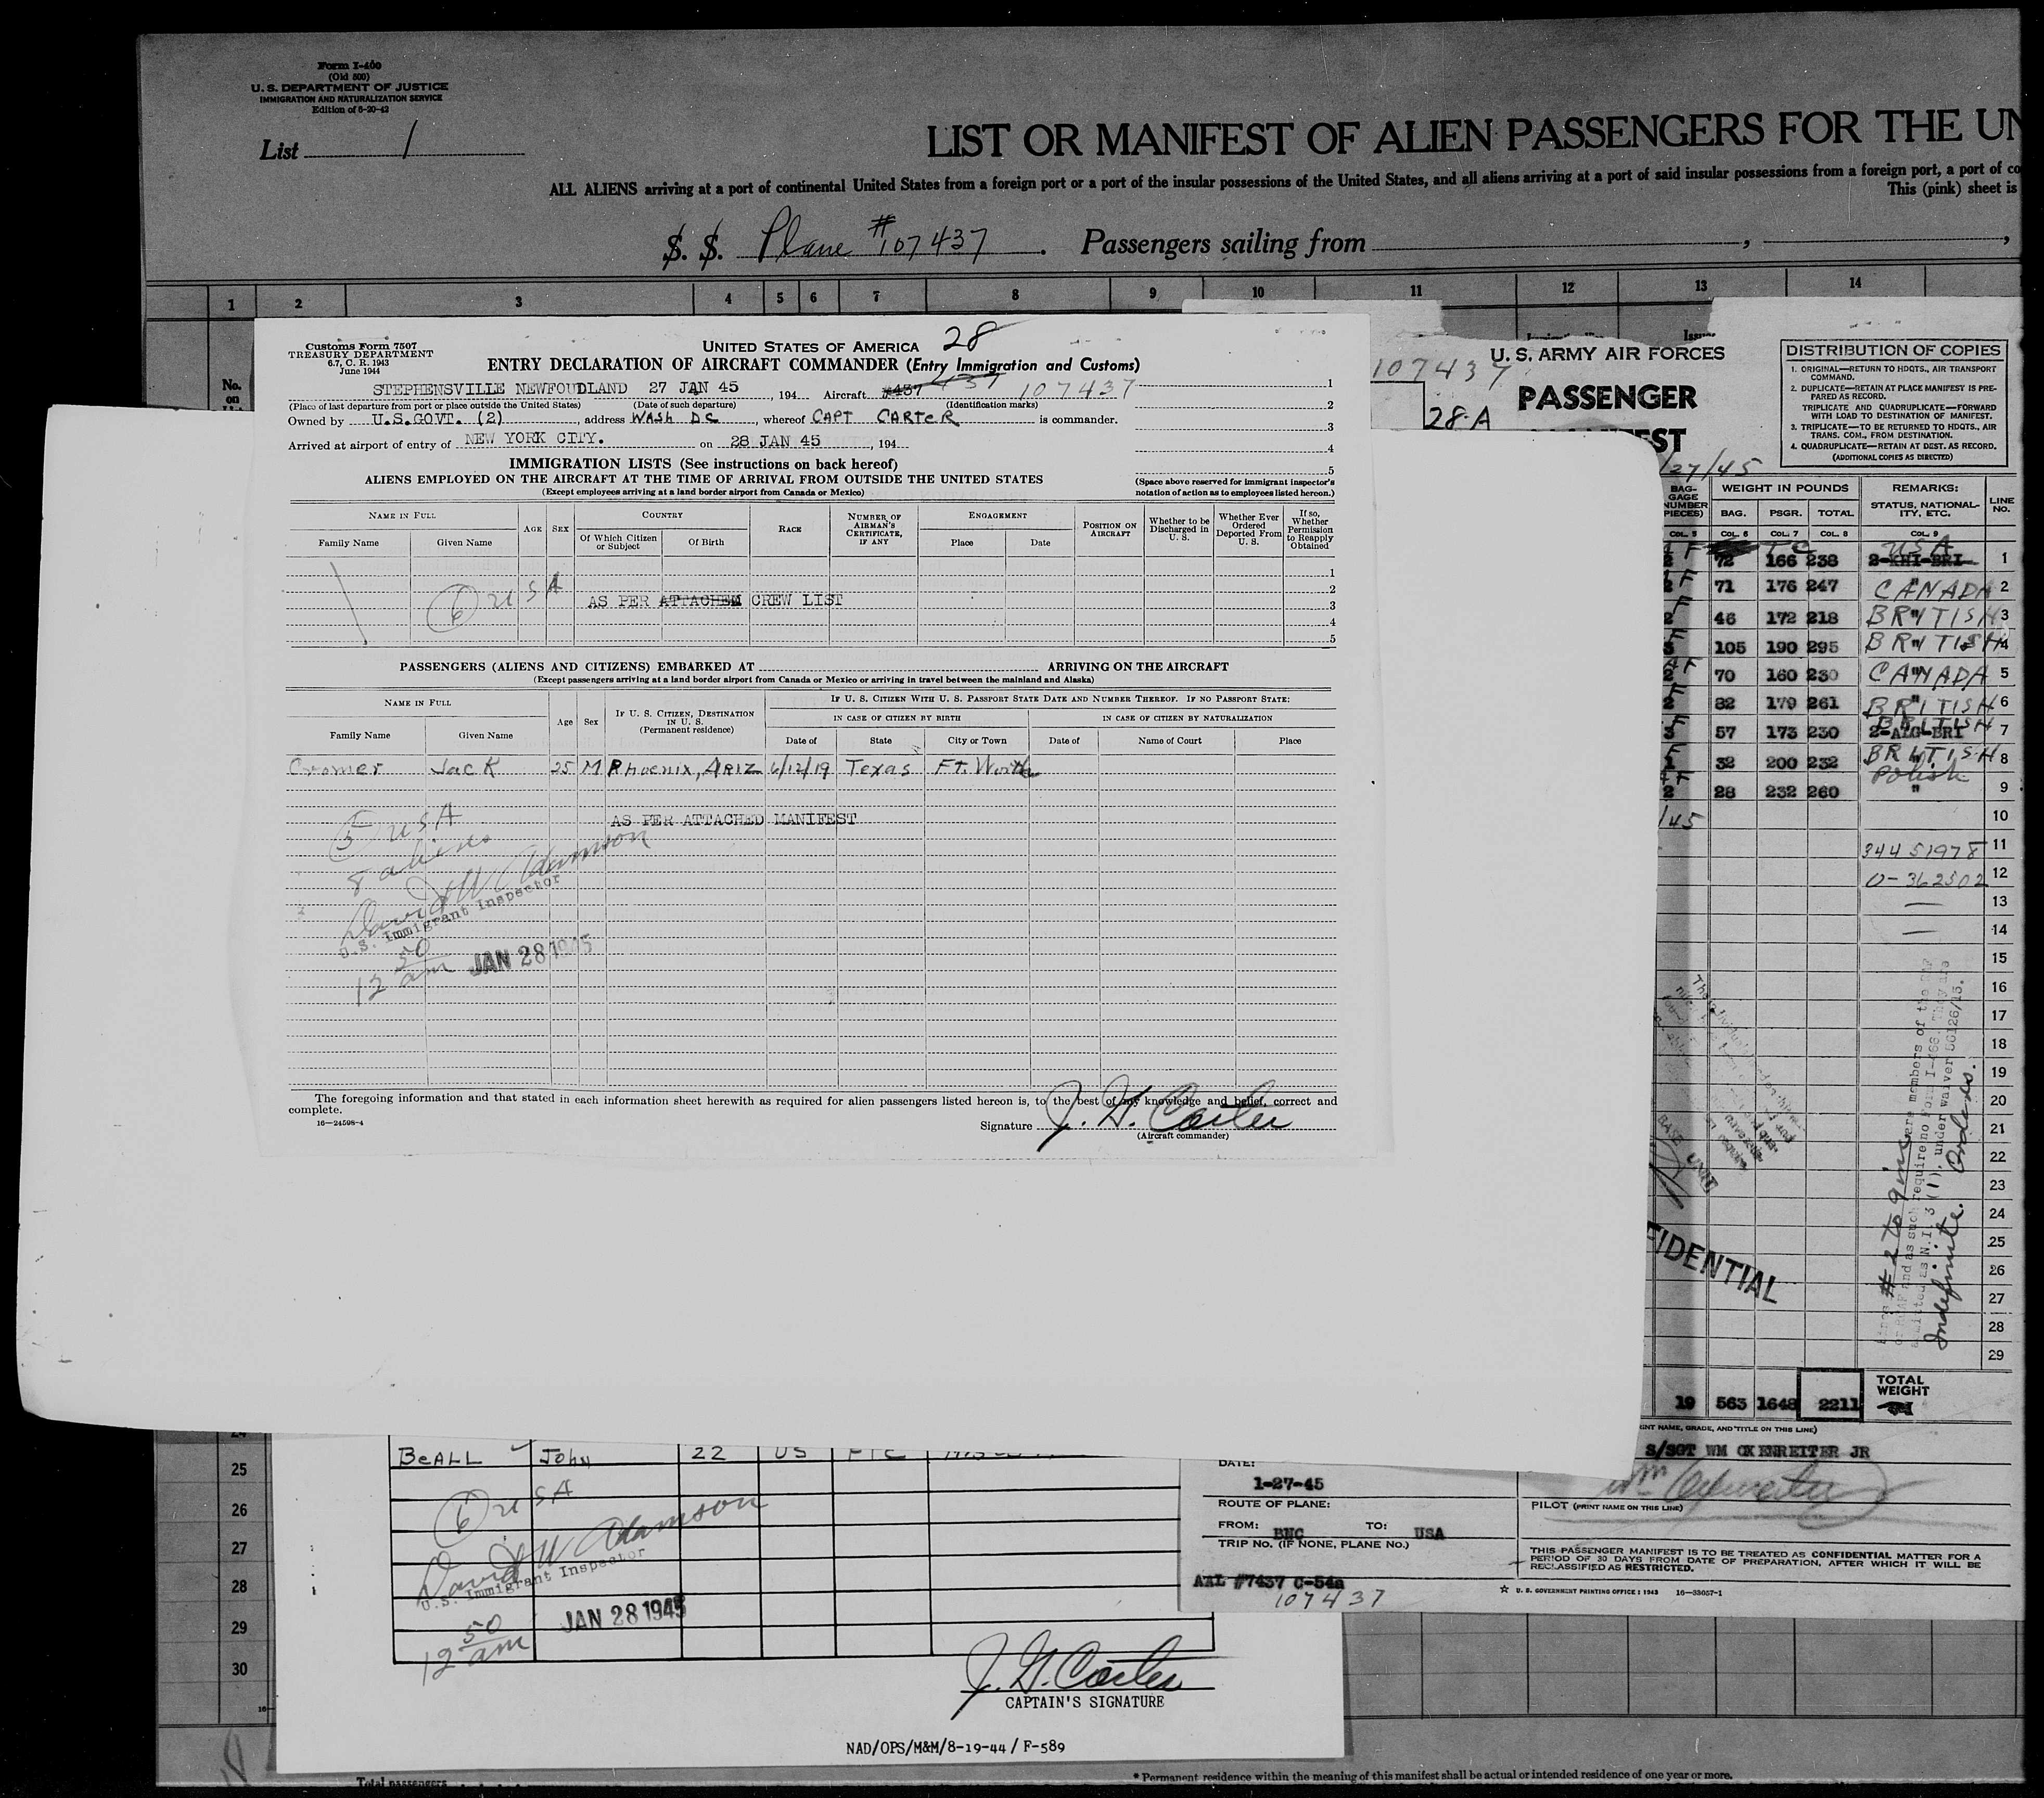 Form I-400
(Old 500)
U. S. DEPARTMENT OF JUSTICE
IMMIGRATION AND NATURALIZATION SERVICE
Edition of 6-20-42
List 1
LIST OR MANIFEST OF ALIEN PASSENGERS FOR THE UN
ALL ALIENS arriving at a port of continental United States from a foreign port or a port of the insular possessions of the United States, and all aliens arriving at a port of said insular possessions from a foreign port, a port of co
This (pink) sheet is
S. S. Plane #107437 . Passengers sailing from
1 2 3 4 5 6 7 8 9 10 11 12 13 14
No.
on
Customs Form 7507
TREASURY DEPARTMENT
6.7, C. R. 1943
June 1944
UNITED STATES OF AMERICA 28
ENTRY DECLARATION OF AIRCRAFT COMMANDER (Entry Immigration and Customs)
STEPHENSVILLE NEWFOUDLAND 27 JAN 45 , 194 Aircraft #437 437 107437 1
(Place of last departure from port or place outside the United States) (Date of such departure) (Identification marks) 2
Owned by U.S.GOVT. (2) , address WASH DC , whereof CAPT CARTER is commander.
3
Arrived at airport of entry of NEW YORK CITY. on 28 JAN 45 , 194
4
IMMIGRATION LISTS (See instructions on back hereof) 5
ALIENS EMPLOYED ON THE AIRCRAFT AT THE TIME OF ARRIVAL FROM OUTSIDE THE UNITED STATES
(Except employees arriving at a land border airport from Canada or Mexico)
(Space above reserved for immigrant inspector's
notation of action as to employees listed hereon.)
NAME IN FULL
Family Name Given Name
AGE SEX
COUNTRY
Of Which Citizen or Subject Of Birth
RACE
NUMBER OF AIRMAN'S CERTIFICATE, IF ANY
ENGAGEMENT
Place Date
POSITION ON AIRCRAFT
Whether to be Discharged in U. S.
Whether Ever Ordered Deported From U. S.
If so, Whether Permission to Reapply Obtained
1
2
6 USA
AS PER ATTACHED CREW LIST 3
4
5
PASSENGERS (ALIENS AND CITIZENS) EMBARKED AT ARRIVING ON THE AIRCRAFT
(Except passengers arriving at a land border airport from Canada or Mexico or arriving in travel between the mainland and Alaska)
NAME IN FULL
Family Name Given Name
Age Sex
IF U. S. CITIZEN, DESTINATION IN U. S.
(Permanent residence)
IF U. S. CITIZEN WITH U. S. PASSPORT STATE DATE AND NUMBER THEREOF. IF NO PASSPORT STATE:
IN CASE OF CITIZEN BY BIRTH IN CASE OF CITIZEN BY NATURALIZATION
Date of State City or Town Date of Name of Court Place
Cromer Jack 25 M Phoenix, ARIZ 6/12/19 Texas Ft. Worth
AS PER ATTACHED MANIFEST
5 USA
8 aliens
David W Adamson
U.S. Immigrant Inspector
12 50 am JAN 28 1945
The foregoing information and that stated in each information sheet herewith as required for alien passengers listed hereon is, to the best of my knowledge and belief, correct and
complete.
16—24598-4
Signature J. H. Carter
(Aircraft commander)
107437
28-A
U. S. ARMY AIR FORCES
PASSENGER
EST
/27/45
DISTRIBUTION OF COPIES
1. ORIGINAL—RETURN TO HDQTS., AIR TRANSPORT COMMAND.
2. DUPLICATE—RETAIN AT PLACE MANIFEST IS PREPARED AS RECORD.
TRIPLICATE AND QUADRUPLICATE—FORWARD WITH LOAD TO DESTINATION OF MANIFEST.
3. TRIPLICATE—TO BE RETURNED TO HDQTS., AIR TRANS. COM., FROM DESTINATION.
4. QUADRUPLICATE—RETAIN AT DEST. AS RECORD.
(ADDITIONAL COPIES AS DIRECTED)
BAGGAGE (NUMBER PIECES) WEIGHT IN POUNDS REMARKS: LINE NO.
BAG. PSGR. TOTAL STATUS, NATIONALITY, ETC.
COL. 5 COL. 6 COL. 7 COL. 8 COL. 9
2 72 166 238 USA 2-KHI-BRI 1
2 71 176 247 CANADA 2
2 46 172 218 BRITISH 3
3 105 190 295 BRITISH 4
2 70 160 230 CANADA 5
2 82 179 261 BRITISH 6
3 57 173 230 BRITISH 2-ALG-BRI 7
1 32 200 232 BRITISH 8
2 28 232 260 Polish " 9
/45 10
34451978 11
O-362502 12
— 13
— 14
15
16
17
18
19
20
21
22
23
24
25
26
27
28
29
#2 to 9 inc are members of the RAF
and as such require no Form I-466. They are
admitted as N.I. 3 (1), under waiver 56126/15.
Indefinite. Orders.
BASE UNIT
FIDENTIAL
19 563 1648 2211 TOTAL WEIGHT
NT NAME, GRADE, AND TITLE ON THIS LINE)
S/SGT WM OXENREITER JR
Wm Oxenreiter
DATE:
1-27-45
ROUTE OF PLANE:
FROM: BNC TO: USA
TRIP NO. (IF NONE, PLANE NO.)
AAL #7437 C-54a
107437
PILOT (PRINT NAME ON THIS LINE)
THIS PASSENGER MANIFEST IS TO BE TREATED AS CONFIDENTIAL MATTER FOR A
PERIOD OF 30 DAYS FROM DATE OF PREPARATION, AFTER WHICH IT WILL BE
RECLASSIFIED AS RESTRICTED.
☆ U. S. GOVERNMENT PRINTING OFFICE: 1943 16—33057-1
24
25
26
27
28
29
30
BeALL John 22 US
6 USA
David W Adamson
U.S. Immigrant Inspector
12 50 am JAN 28 1945
J. H. Carter
CAPTAIN'S SIGNATURE
NAD/OPS/M&M/8-19-44/F-589
Total passengers
* Permanent residence within the meaning of this manifest shall be actual or intended residence of one year or more.